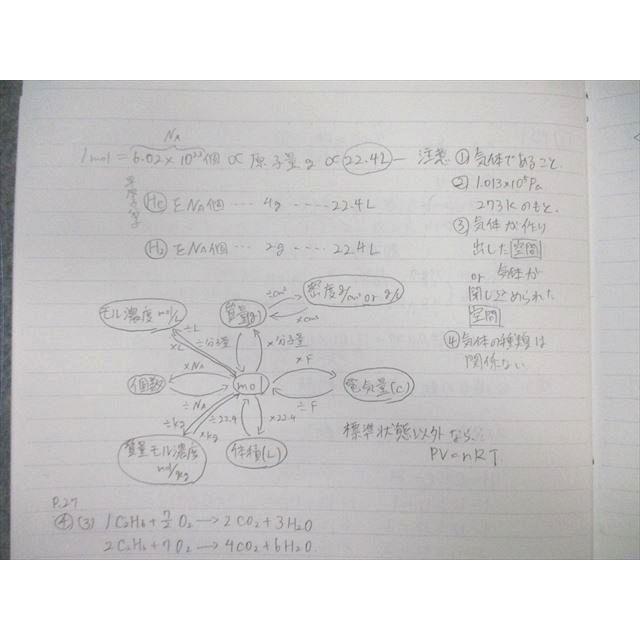 NA
1mol = 6.02×10²³個 ∝ 原子量g ∝ 22.4L ― 注意 ① 気体であること.
② 1.013×10⁵Pa
273Kのもと.
③ 気体が作り
出した空間
or 気体が
閉じ込められた
空間
④ 気体の種類は
関係ない
He ΣNA個 ‥‥ 4g ‥‥‥ 22.4L
H₂ ΣNA個 ‥‥ 2g ‥‥‥ 22.4L
モル濃度 mol/L
質量(g)
÷cm³
×cm³
密度 g/cm³ or g/L
÷L
×L
÷分子量
×分子量
×F
÷F
電気量(C)
個数
×NA
÷NA
mol
÷kg
×kg
÷22.4
×22.4
質量モル濃度
mol/kg
体積(L)
標準状態以外なら、
PV=nRT
P.27
④(3) 1C₂H₆+7/2 O₂→2CO₂+3H₂O
2C₂H₆+7O₂→4CO₂+6H₂O